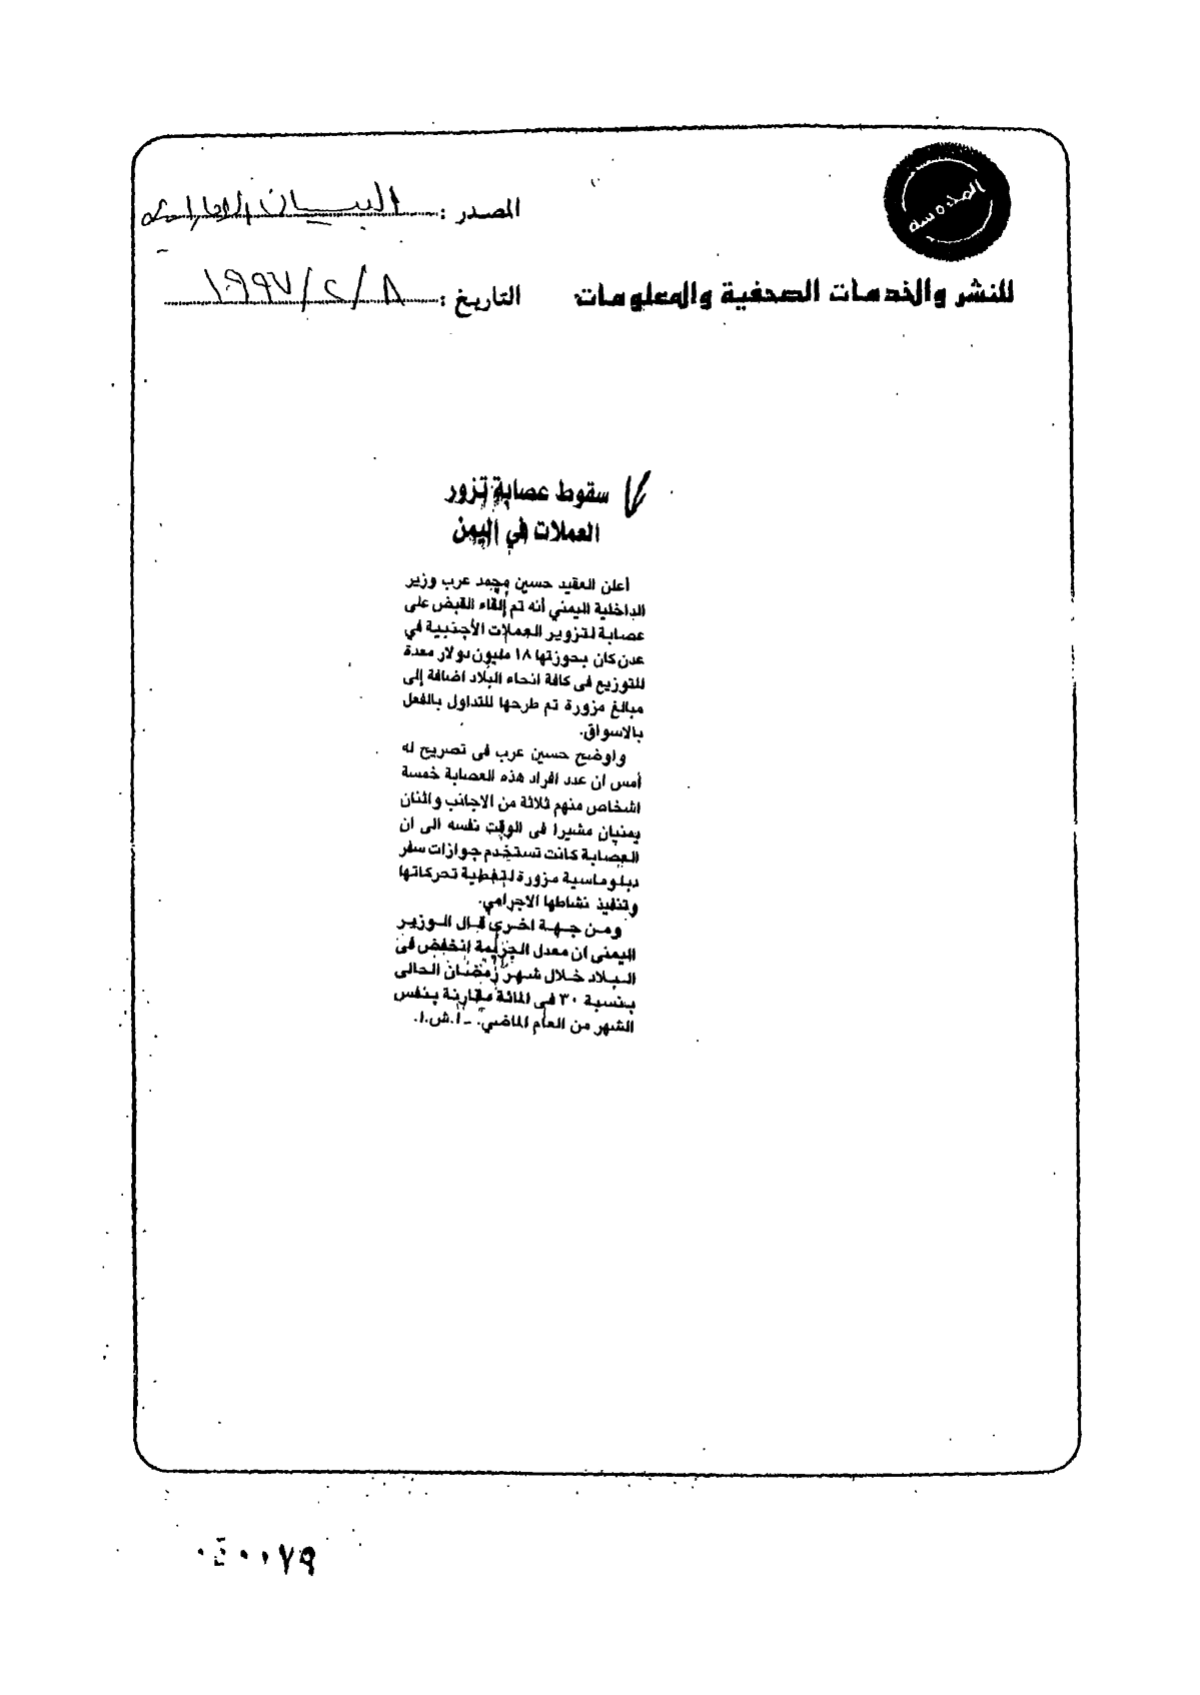 المصدر : البيان الاماراتية
للنشر والخدمات الصحفية والمعلومات
التاريخ : ٨/٢/١٩٩٧
سقوط عصابة تزور
العملات في اليمن
أعلن العقيد حسين محمد عرب وزير
الداخلية اليمني أنه تم إلقاء القبض على
عصابة لتزوير العملات الأجنبية في
عدن كان بحوزتها ١٨ مليون دولار معدة
للتوزيع فى كافة انحاء البلاد اضافة إلى
مبالغ مزورة تم طرحها للتداول بالفعل
بالاسواق.
واوضح حسين عرب فى تصريح له
أمس ان عدد افراد هذه العصابة خمسة
اشخاص منهم ثلاثة من الاجانب واثنان
يمنيان مشيرا فى الوقت نفسه الى ان
العصابة كانت تستخدم جوازات سفر
دبلوماسية مزورة لتغطية تحركاتها
وتنفيذ نشاطها الاجرامي.
ومن جهة اخرى قال الوزير
اليمنى ان معدل الجريمة إنخفض فى
البلاد خلال شهر رمضان الحالى
بنسبة ٣٠ فى المائة مقارنة بنفس
الشهر من العام الماضي. ـ أ.ش.ا.
٠٤٠٠٧٩